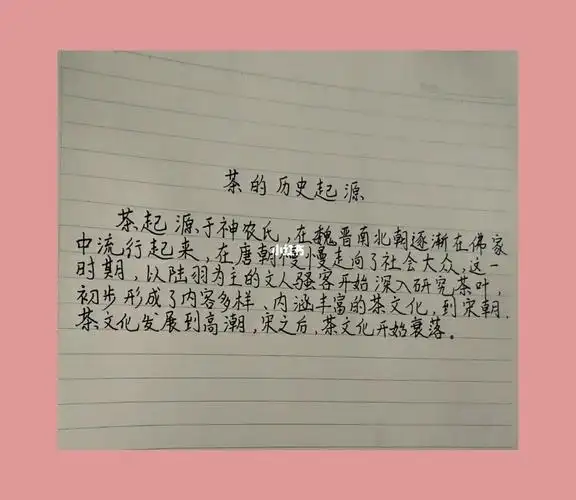 茶的历史起源
茶起源于神农氏,在魏晋南北朝逐渐在佛家
中流行起来,在唐朝慢慢走向了社会大众,这一
时期,以陆羽为主的文人骚客开始深入研究茶叶,
初步形成了内容多样、内涵丰富的茶文化,到宋朝,
茶文化发展到高潮,宋之后,茶文化开始衰落。
小红书